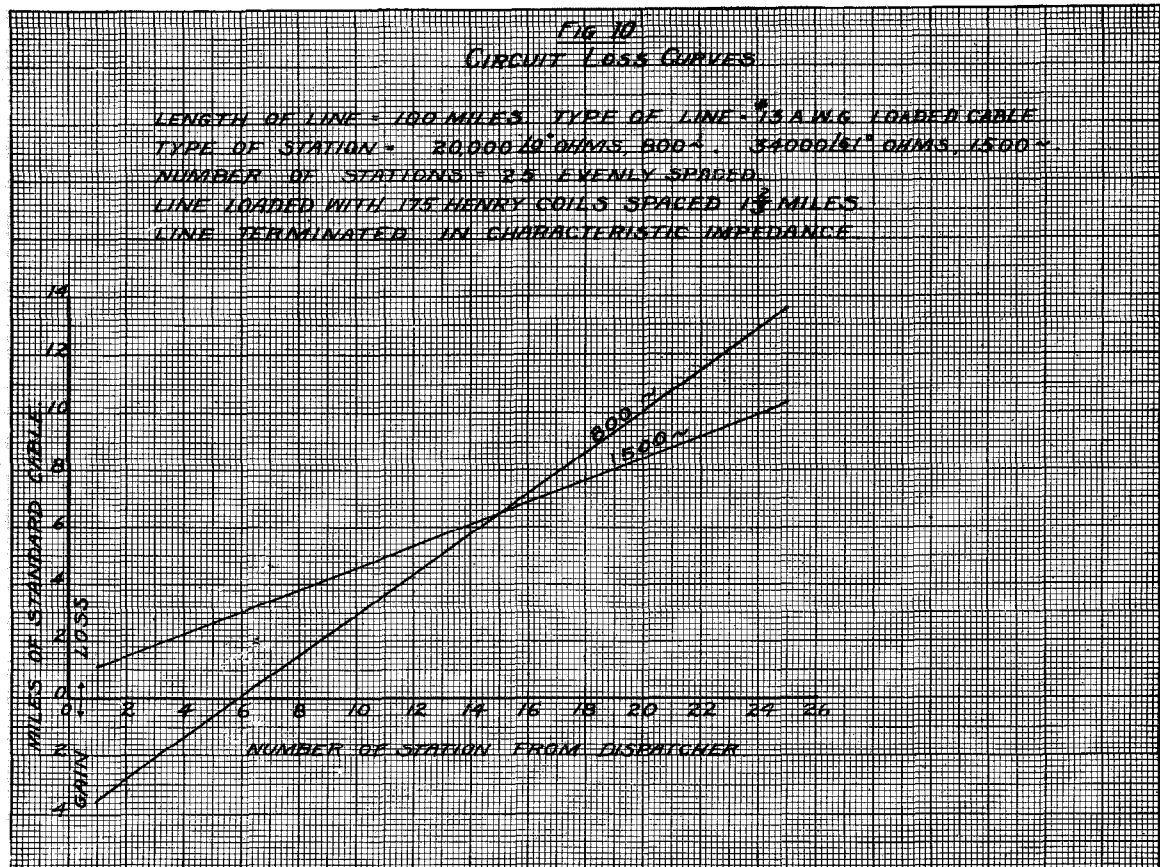 FIG 10
CIRCUIT LOSS CURVES
LENGTH OF LINE = 100 MILES. TYPE OF LINE = #13 A.W.G. LOADED CABLE
TYPE OF STATION = 20,000 OHMS, 800~. 34000 OHMS, 1500~.
NUMBER OF STATIONS = 25 EVENLY SPACED.
LINE LOADED WITH .175 HENRY COILS SPACED MILES.
LINE TERMINATED IN CHARACTERISTIC IMPEDANCE.
14
12
10
8
6
4
2
0
2
4
MILES OF STANDARD CABLE.
LOSS
GAIN
800 ~
1500 ~
0 2 4 6 8 10 12 14 16 18 20 22 24 26
NUMBER OF STATION FROM DISPATCHER